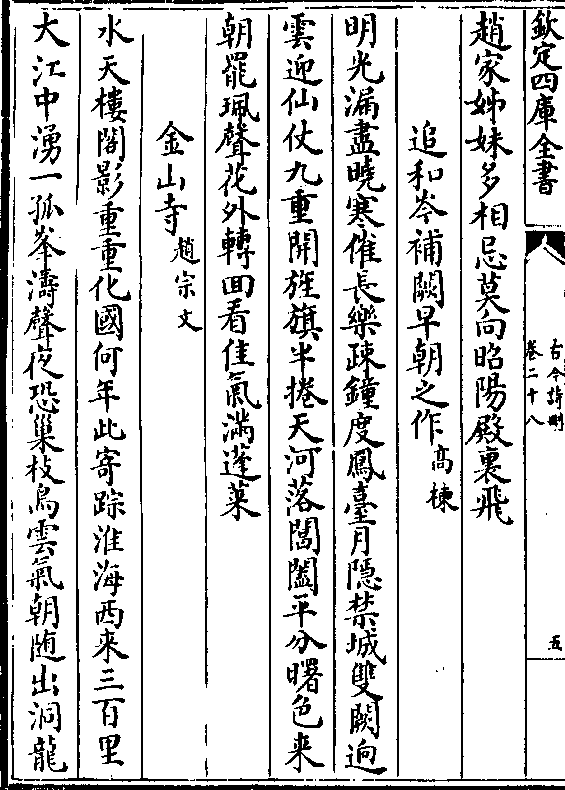 欽定四庫全書
古今詩刪
卷二十八
五
趙家姊妹多相忌莫向昭陽殿裏飛
追和岑補闕早朝之作高棅
明光漏盡曉寒催長樂疎鐘度鳳臺月隱禁城雙闕逈
雲迎仙仗九重開旌旗半捲天河落閶闔平分曙色來
朝罷珮聲花外轉回看佳氣滿蓬萊
金山寺趙宗文
水天樓閣影重重化國何年此寄踪淮海西來三百里
大江中湧一孤峯濤聲夜恐巢枝鳥雲氣朝随出洞龍